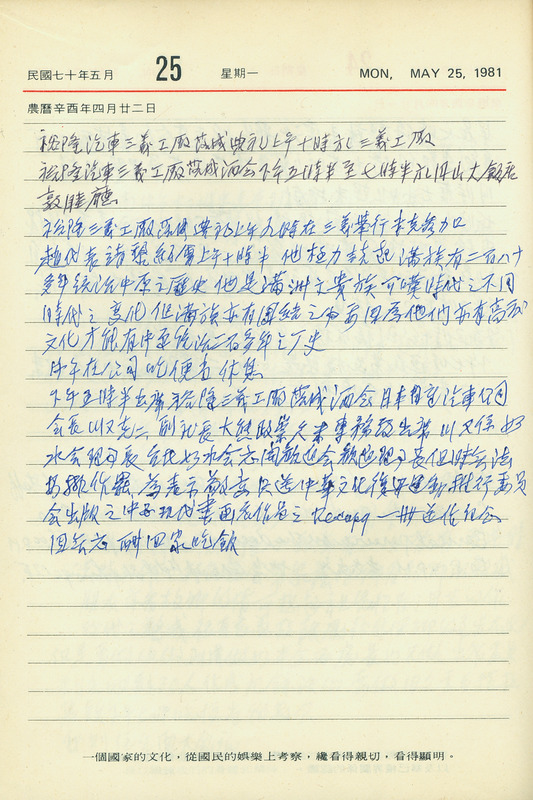 民國七十年五月 25 星期一 MON, MAY 25, 1981
農曆辛酉年四月廿二日
裕隆汽車三義工廠落成典礼上午十時於三義工廠
裕隆汽車三義工廠落成酒会下午五時半至七時半於圓山大飯店
敦睦廳
裕隆三義工廠落成典礼上午九時在三義舉行未克參加
趙代表請 上午十時半 他極力談起滿族有二百八十
多年統治中原之歷史他是滿洲之貴族可嘆時代之不同
時代之變化但滿族亦有團結之必要因為他們亦有高度
文化才能有中原統治二百多年之歷史
中午在公司吃便当休息
下午五時半出席裕隆三義工廠落成酒会日本日產汽車公司
会長川又克二副社長大熊政崇久米專務皆出席川又係
水会 長 水会 開歡迎会歡迎 長但時会
為表示敬意只送中華文化復興運動推行委員
会出版之中 現代書画家作品之 一冊送作紀念
回家吃飯
一個國家的文化，從國民的娛樂上考察，纔看得親切，看得顯明。